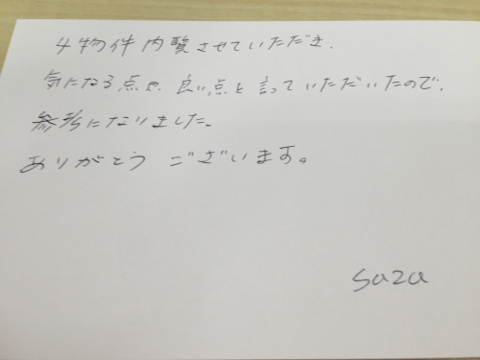 4物件内覧させていただき、
気になる点や、良い点を言っていただいたので、
参考になりました。
ありがとう ございます。
suzu